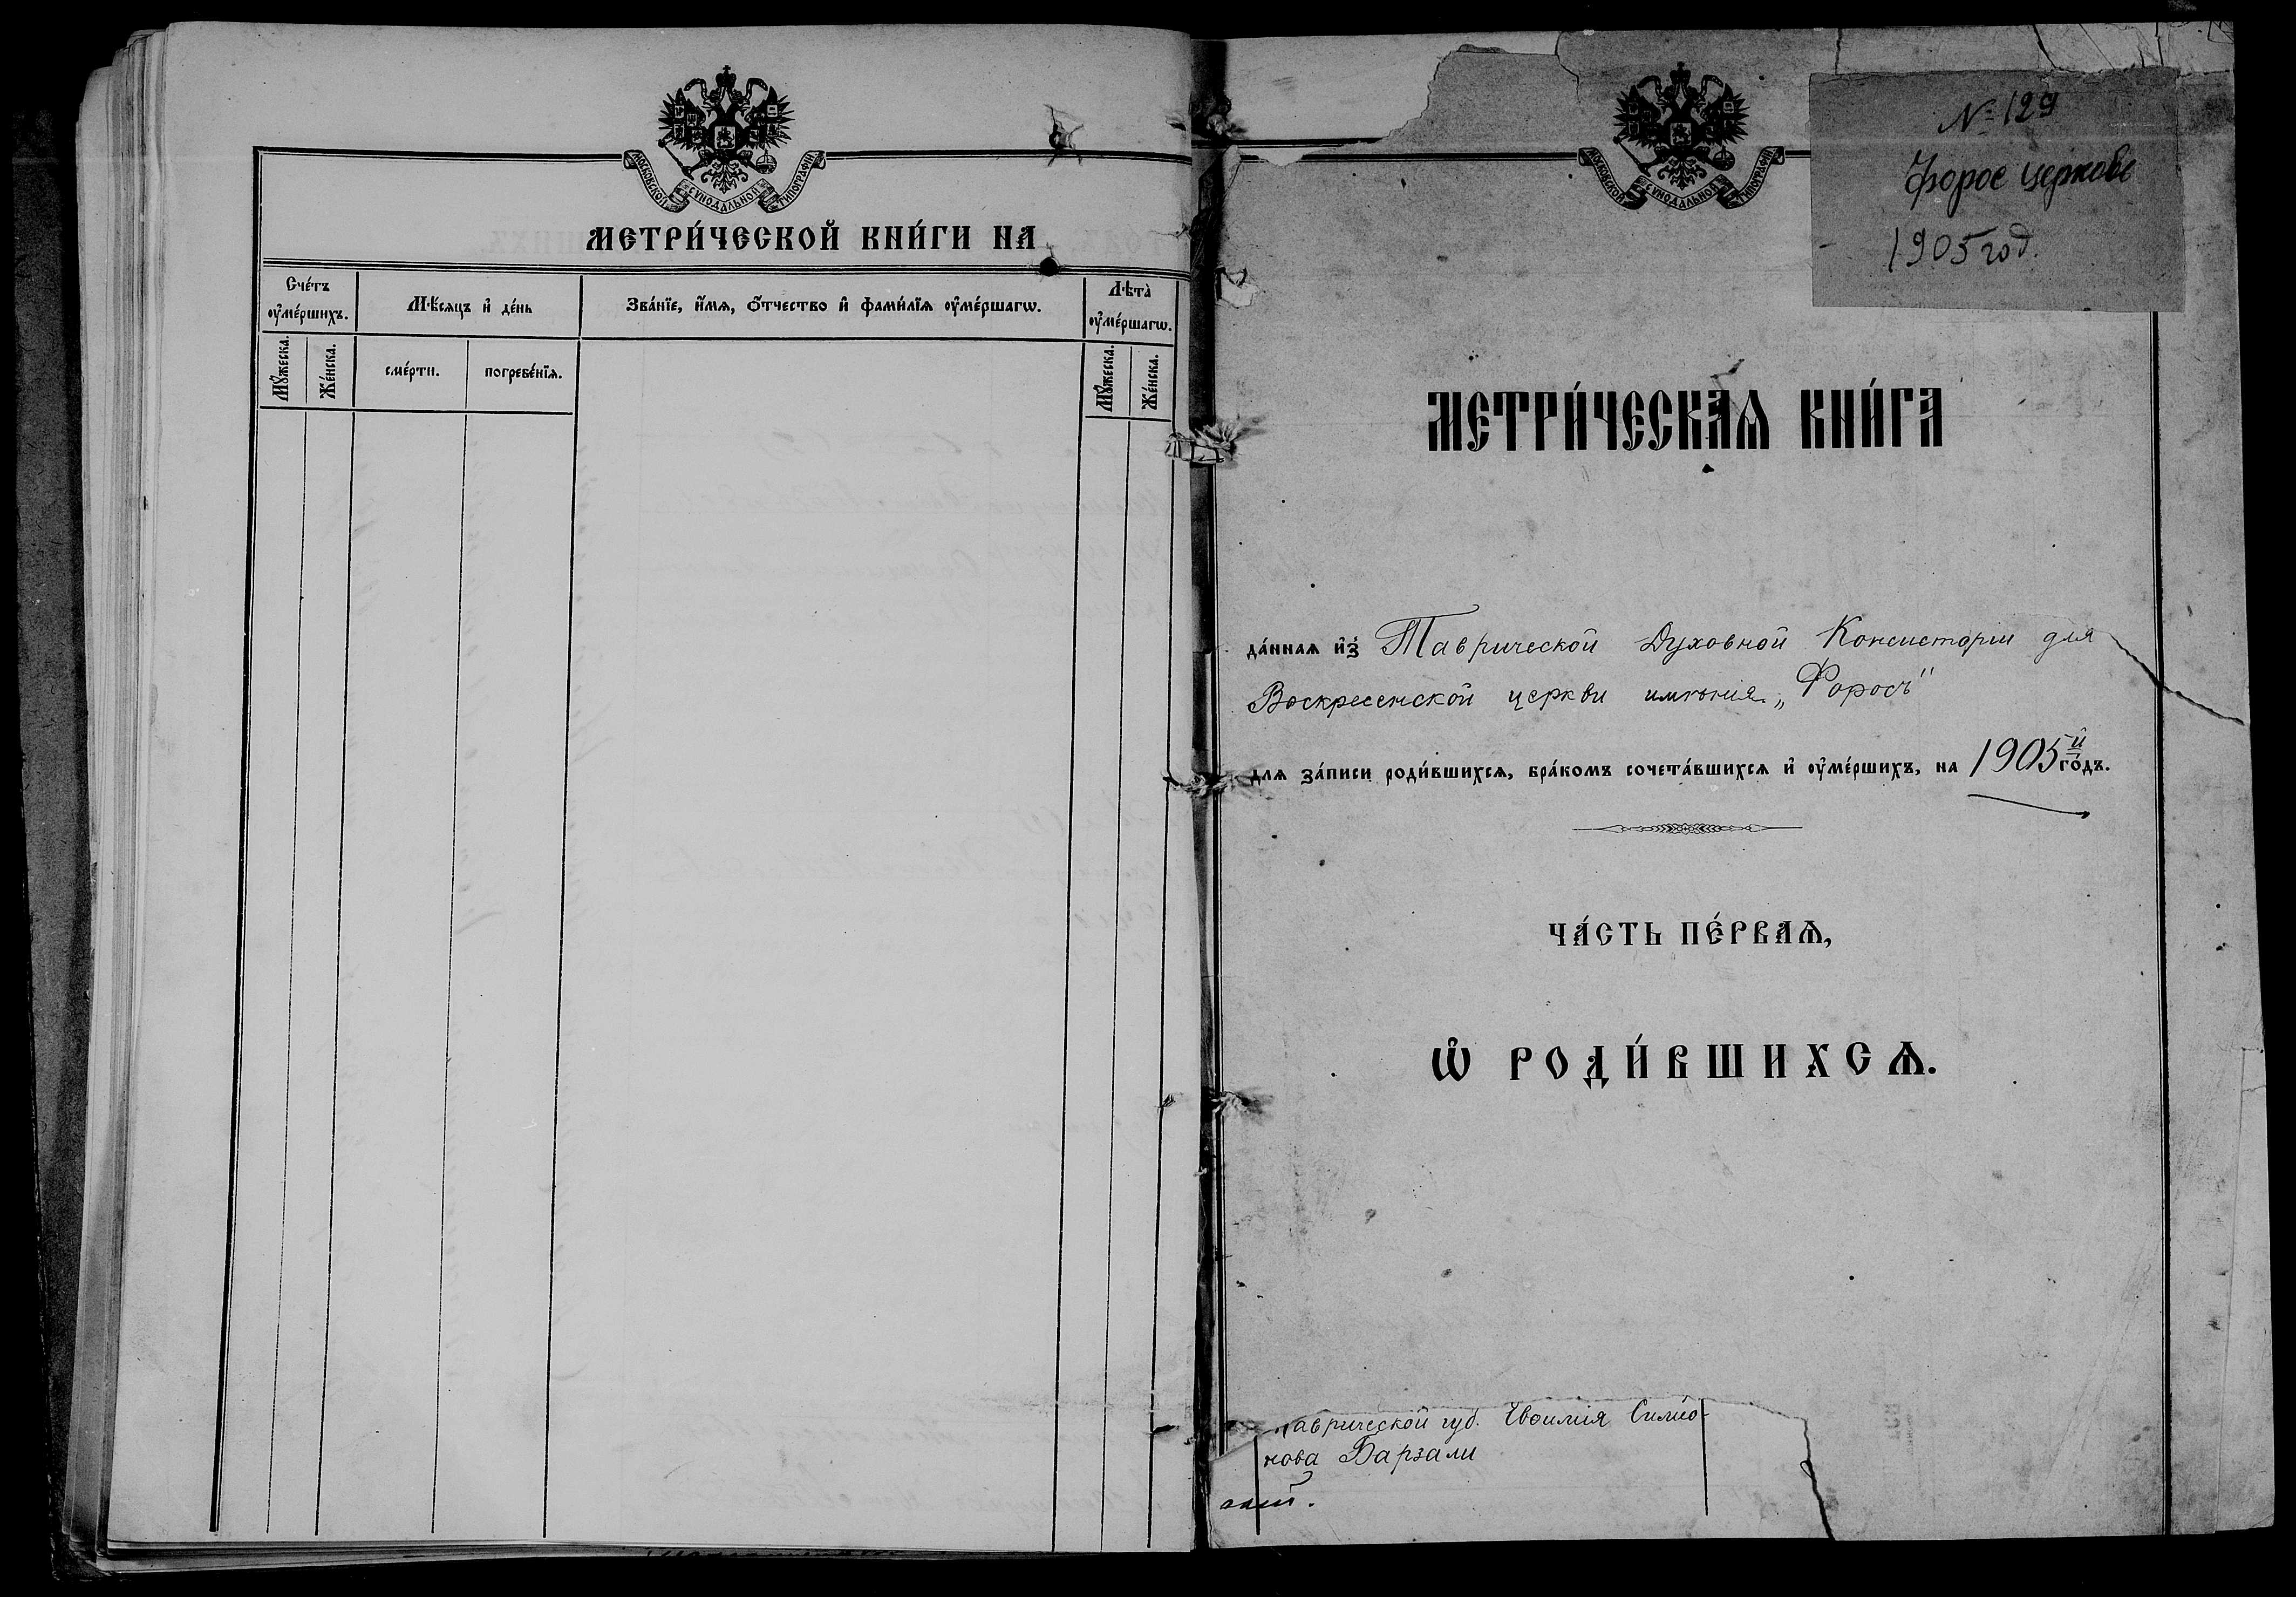 МОСКОВСКОЙ СѴНОДАЛЬНОЙ ТИПОГРАФІИ
МЕТРИ́ЧЕСКОЙ КНИ́ГИ НА
Сче́тъ ᲂу҆ме́ршихъ.
Мꙋ́жеска.
Же́нска.
Мѣ́сяцъ и҆ де́нь
сме́рти.
погребе́нїѧ.
Зва́нїе, и҆́мѧ, ѻ҆́тчество и҆ фами́лїѧ ᲂу҆ме́ршагѡ.
Лѣта̀ ᲂу҆ме́ршагѡ.
Мꙋ́жеска.
Же́нска.
МОСКОВСКОЙ СѴНОДАЛЬНОЙ ТИПОГРАФІИ
№ 129
Форос церковь
1905 год.
МЕТРИ́ЧЕСКАѦ КНИ́ГА
да́ннаѧ и҆з̾ Таврической Духовной Консисторіи для
Воскресенской церкви имѣнія „Форосъ“
длѧ за́писи роди́вшихсѧ, бра́комъ сочета́вшихсѧ и҆ ᲂу҆ме́ршихъ, на 1905й го́дъ.
ЧА́СТЬ ПЕ́РВАѦ,
Ѡ҆ РОДИ́ВШИХСѦ.
таврической губ. Евѳимія Симео-
нова Барзали